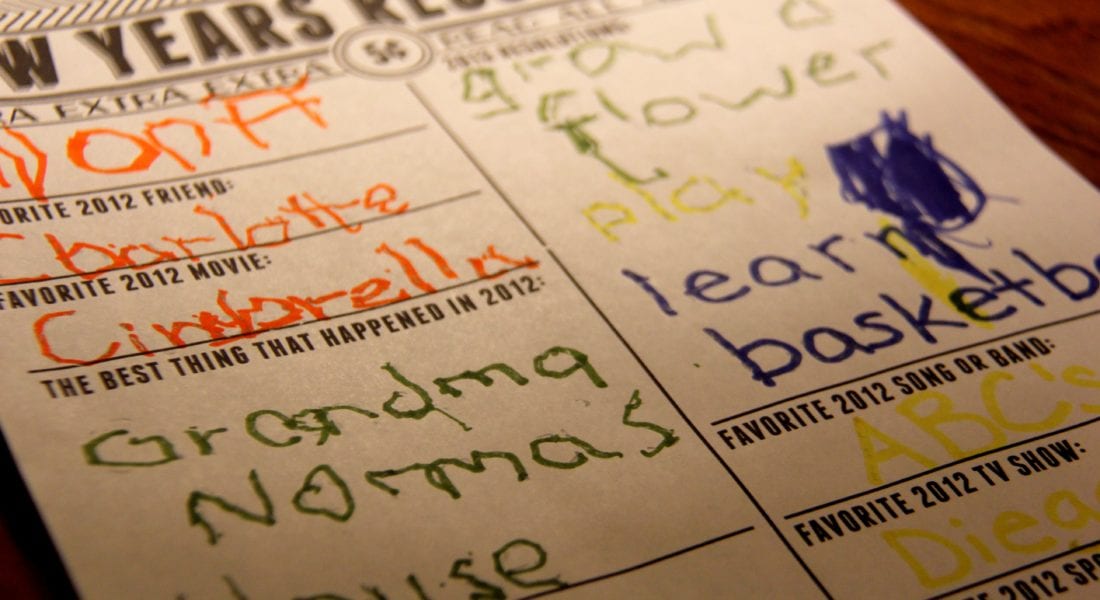 W YEARS
5¢
REAL. ALL
RA EXTRA EXTRA
NonA
ORITE 2012 FRIEND:
Charlotte
FAVORITE 2012 MOVIE:
Cinderella
THE BEST THING THAT HAPPENED IN 2012:
Grandma
Normas
ouse
2013 RESOLUTIONS:
grow a
flower
play
learn
basketba
FAVORITE 2012 SONG OR BAND:
ABC's
FAVORITE 2012 TV SHOW:
Dieg
2012 SPO